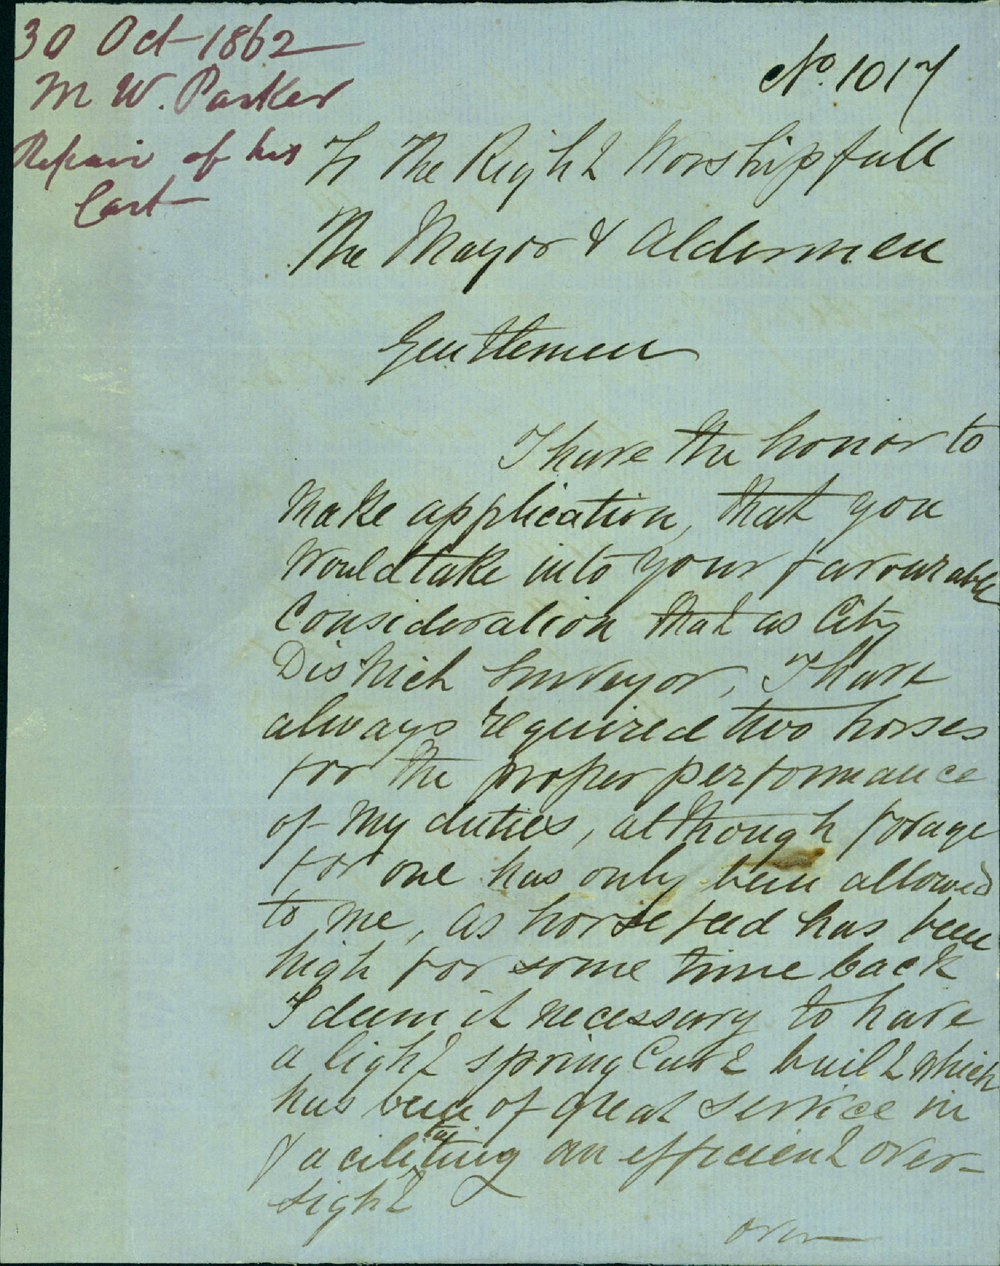 30 Oct 1862
M W. Parker
Repair of his
Cart
No. 1017
To The Right Worshipfull
The Mayor & Aldermen
Gentlemen
I have the honor to
make application, that you
would take into your favourable
Consideration that as City
District Surveyor, I have
always required two horses
for the proper performance
of my duties, although forage
for one has only been allowed
to me, as horse feed has been
high for some time back
I deem it necessary to have
a light spring Cart built which
has been of great service in
faciliting an efficient over-
ta
sight
over